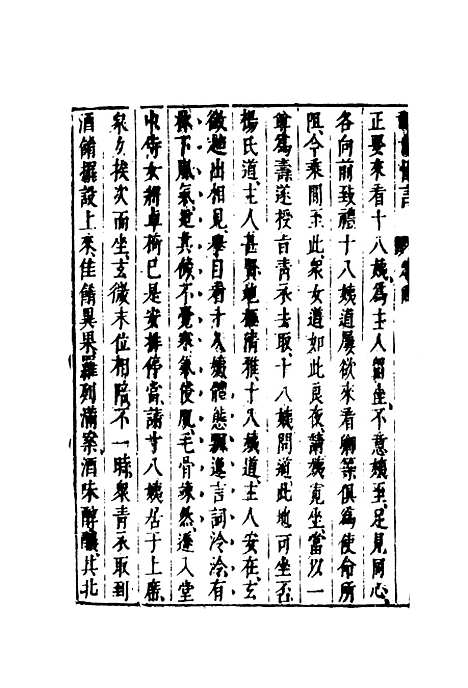 醒世恒言
正要來看十八姨爲主人留坐不意姨至足見同心
各向前致禮十八姨道屢欲來看卿等俱爲使命所
阻今乘間至此衆女道如此良夜請姨寬坐當以一
尊爲壽遂授旨青衣去取十八姨問道此地可坐否
楊氏道主人甚賢地極清雅十八姨道主人安在玄
微趨出相見舉目看十八姨體態飄逸言詞泠泠有
林下風氣近其傍不覺寒氣侵肌毛骨竦然遜入堂
中侍女將卓椅已是安排停當請十八姨居于上席
衆女挨次而坐玄微末位相陪不一時衆青衣取到
酒餚擺設上來佳餚異果羅列滿案酒味醇醲其